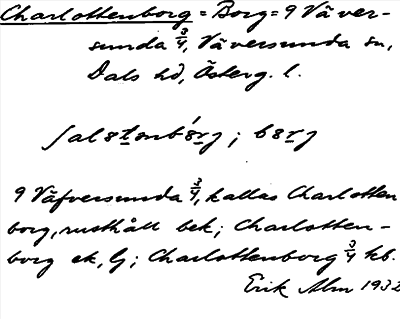 Charlottenborg = Borg = 9 Väver-
sunda 3/4, Väversunda sn,
Dals hd, Österg. l.
ʃal8t8nb8́rj ; b8rj
9 Väfversunda 3/4, kallas Charlotten
borg, rusthåll bek; Charlotten-
borg ek, lj; Charlottenborg 3/4 kb.
Erik Alm 1932